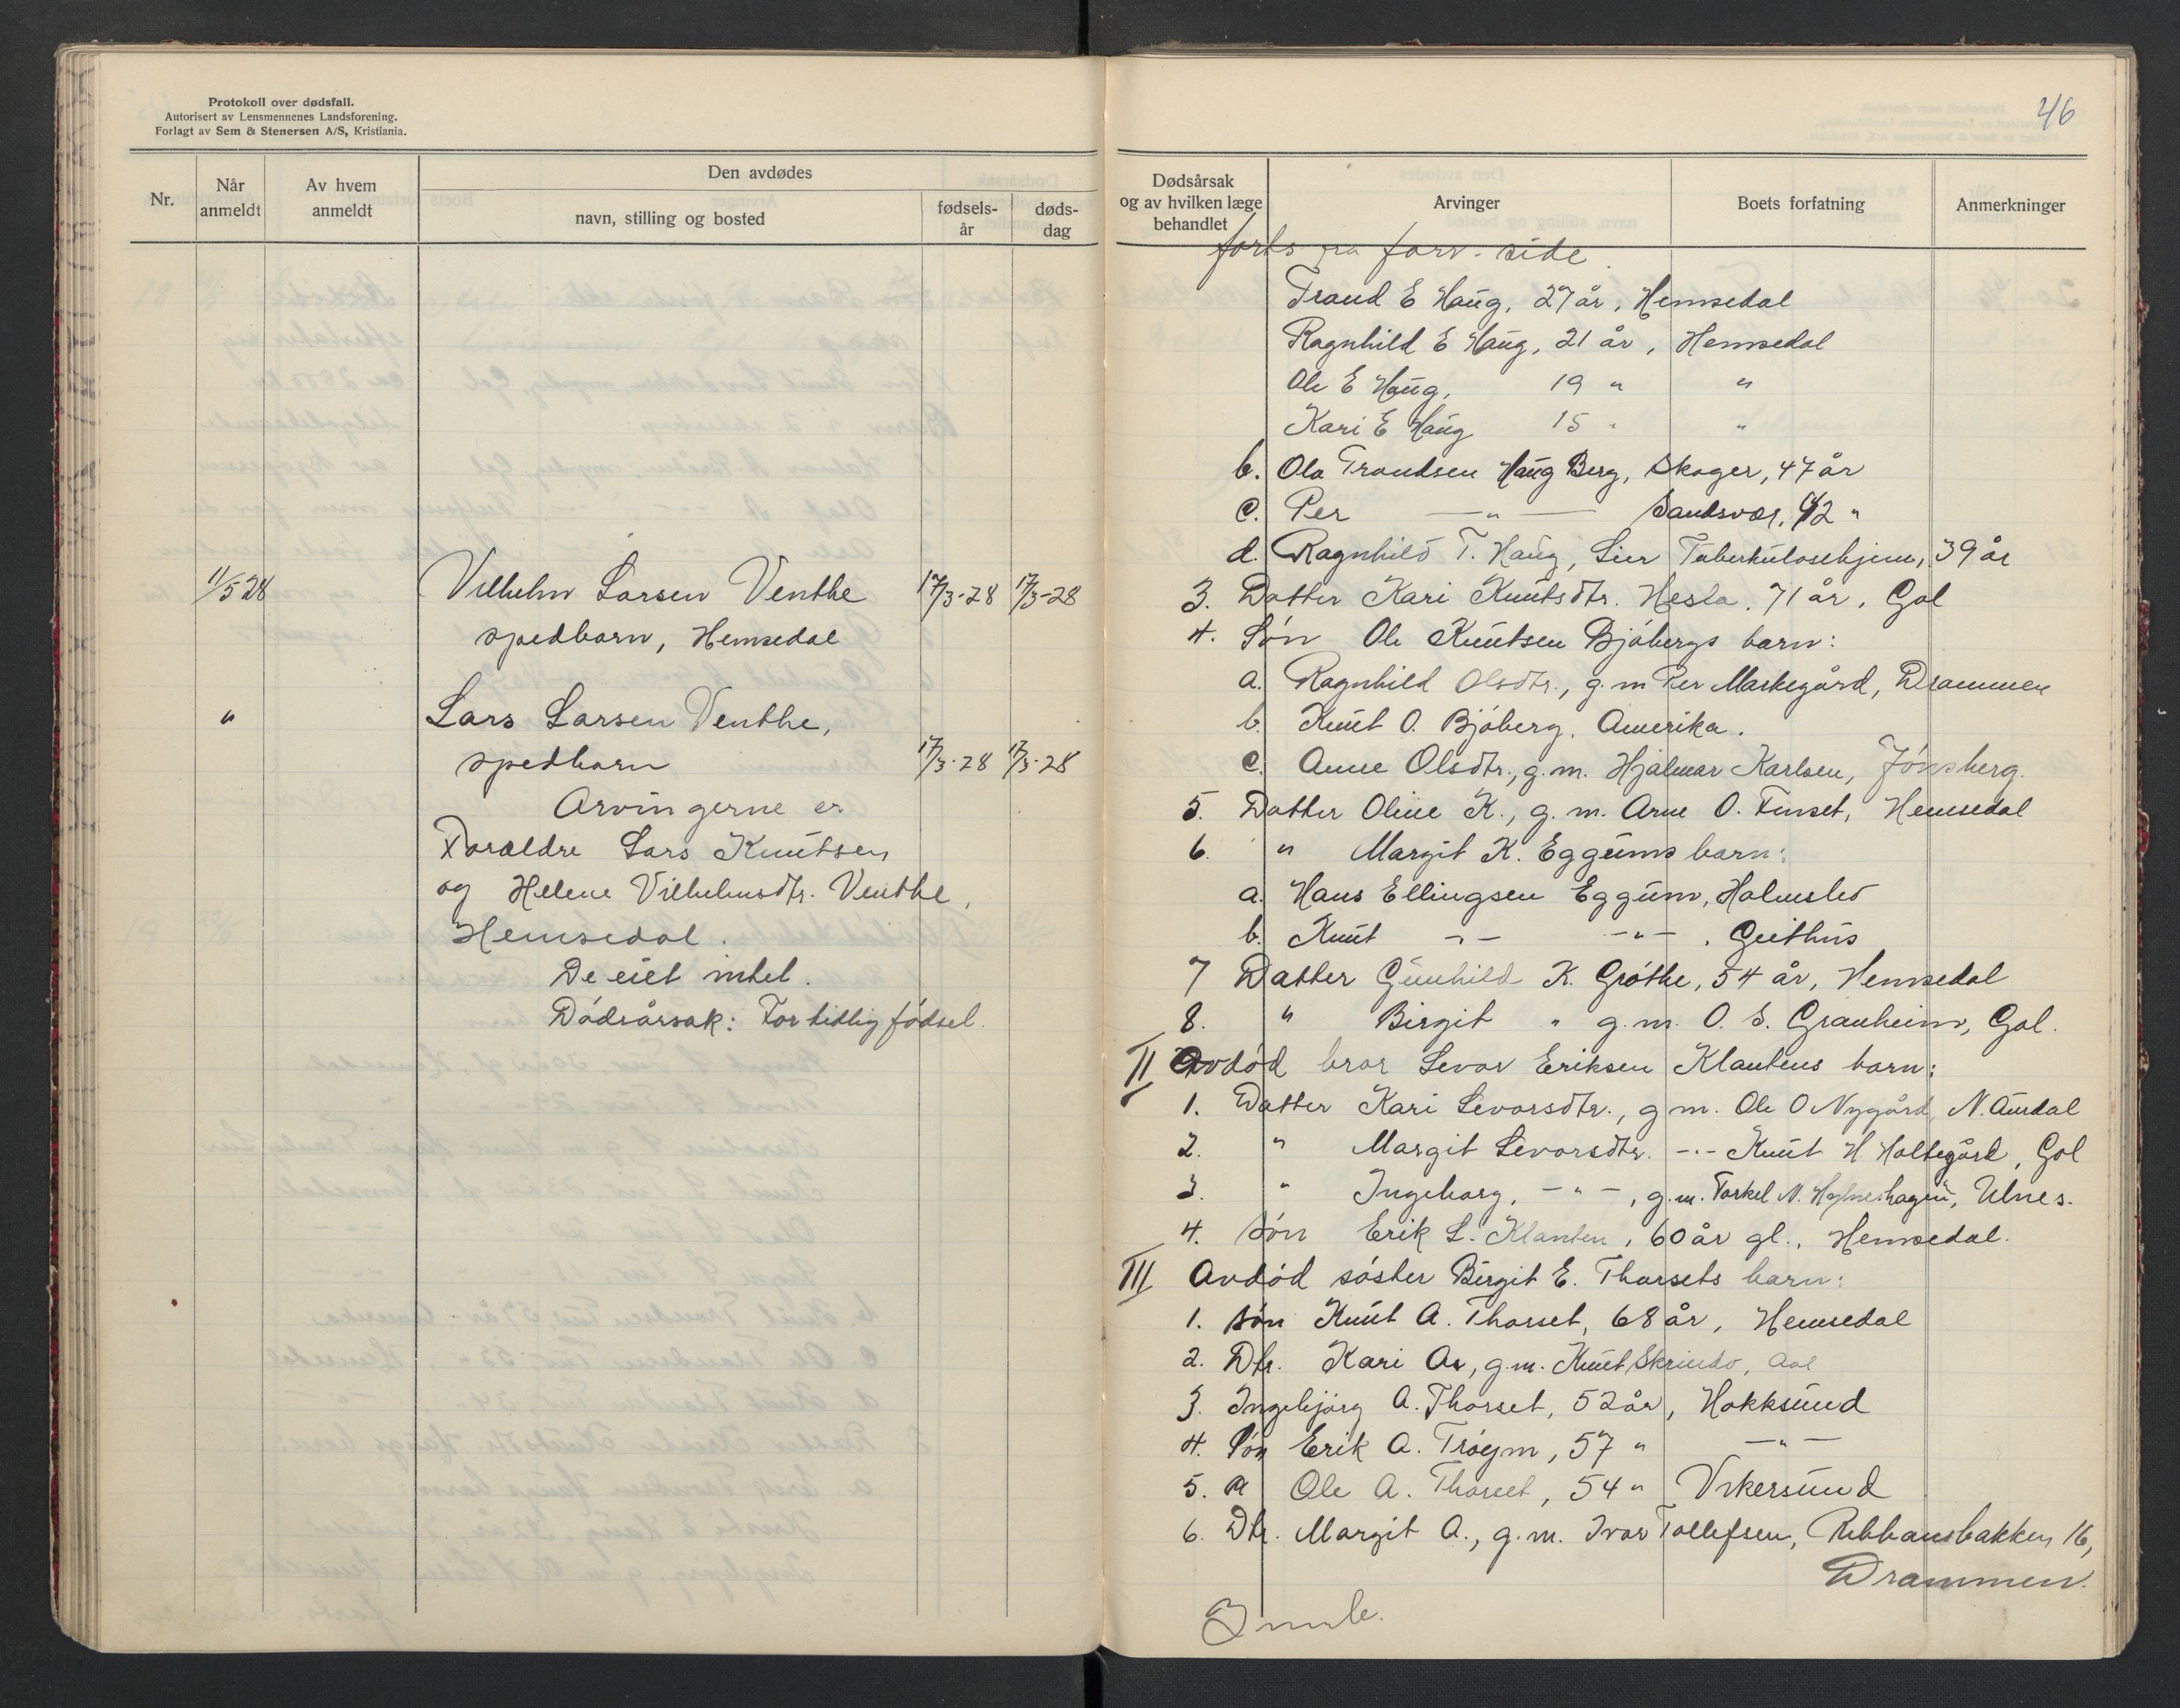 Protokoll over dødsfall.
Autorisert av Lensmennenes Landsforening.
Forlagt av Sem & Stenersen A/S, Kristiania.
Nr.
Når anmeldt
Av hvem anmeldt
Den avdødes
navn, stilling og bosted
fødsels-år
døds-dag
11/5 28 Vilhelm Larsen Venthe 17/3-28 17/3-28
spedbarn, Hemsedal
" Lars Larsen Venthe,
spedbarn 17/3-28 17/3-28
Arvingerne er
Foraldre Lars Knutsen
og Helene Vilhelmsdtr. Venthe,
Hemsedal.
De eiet intet.
Dödsårsak: For tidlig födsel.
46
Dødsårsak og av hvilken læge behandlet
Arvinger
Boets forfatning
Anmerkninger
forts fra forr. side.
Trond E Haug, 27 år, Hemsedal
Ragnhild E Haug, 21 år, Hemsedal
Ole E Haug, 19 " "
Kari E Haug 15 " "
b. Ola Trondsen Haug Berg, Skoger, 47 år
c. Per —"— Sandsvær, 42 "
d. Ragnhild T. Haug, Lier Tuberkulosehjem, 39 år
3. Datter Kari Knutsdtr. Hesla, 71 år, Gol
4. Sön Ole Knutsen Bjöbergs barn:
a. Ragnhild Olsdtr., g.m Per Markegård, Drammen
b. Knut O. Bjöberg, Amerika.
c. Anne Olsdtr., g.m. Hjalmar Karlsen, Jönsberg.
5. Datter Oline K., g.m. Arne O. Tuset, Hemsedal
6. " Margit K. Eggums barn:
a. Hans Ellingsen Eggum, Holmsbo
b. Knut -"- -"-, Geithus
7 Datter Gunhild K. Gröthe, 54 år, Hemsedal
8. " Birgit " g.m. O. S. Granheim, Gol.
II Avdöd bror Levor Eriksen Klantens barn:
1. Datter Kari Levorsdtr., g m. Ole O Nygård, N. Aurdal
2. " Margit Levorsdtr. -"- Knut H. Holtegård, Gol
3. " Ingeborg, -"-, g.m. Torkel N. Ulnes.
4. Sön Erik L. Klanten, 60 år gl., Hemsedal.
III Avdöd söster Birgit E. Thorsets barn:
1. Sön Knut A. Thorset, 68 år, Hemsedal
2. Dtr. Kari A., g.m. Knut Skrindo, Aal
3. Ingebjörg A. Thorset, 52 år, Hokksund
4. Sön Erik A. Tröym, 57 " —"—
5. " Ole A. Thorset, 54 " Vikersund
6. Dtr. Margit A., g.m. Ivar Tollefsen, 16,
Drammen.